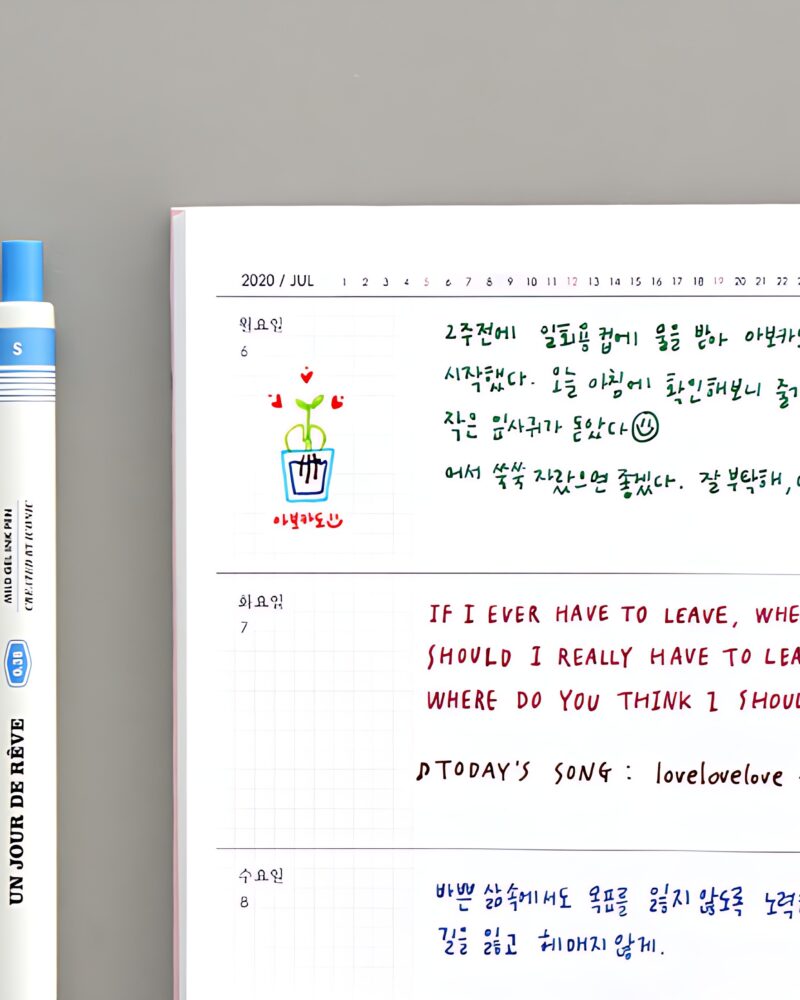 S
MILD GEL INK PEN
CREATED BY ICONIC
0.38
UN JOUR DE RÊVE
2020 / JUL 1 2 3 4 5 6 7 8 9 10 11 12 13 14 15 16 17 18 19 20 21 22
월요일
6
2주전에 일회용 컵에 물을 받아
시작했다. 오늘 아침에 확인해보니
작은 잎사귀가 돋았다
어서 쑥쑥 자랐으면 좋겠다. 잘 부탁해,
아보카도
화요일
7
IF I EVER HAVE TO LEAVE, WHE
SHOULD I REALLY HAVE TO LEA
WHERE DO YOU THINK I SHOUL
♪TODAY'S SONG : lovelovelove
수요일
8
바쁜 삶속에서도 목표를 잃지 않도록
길을 잃고 헤매지 않게.